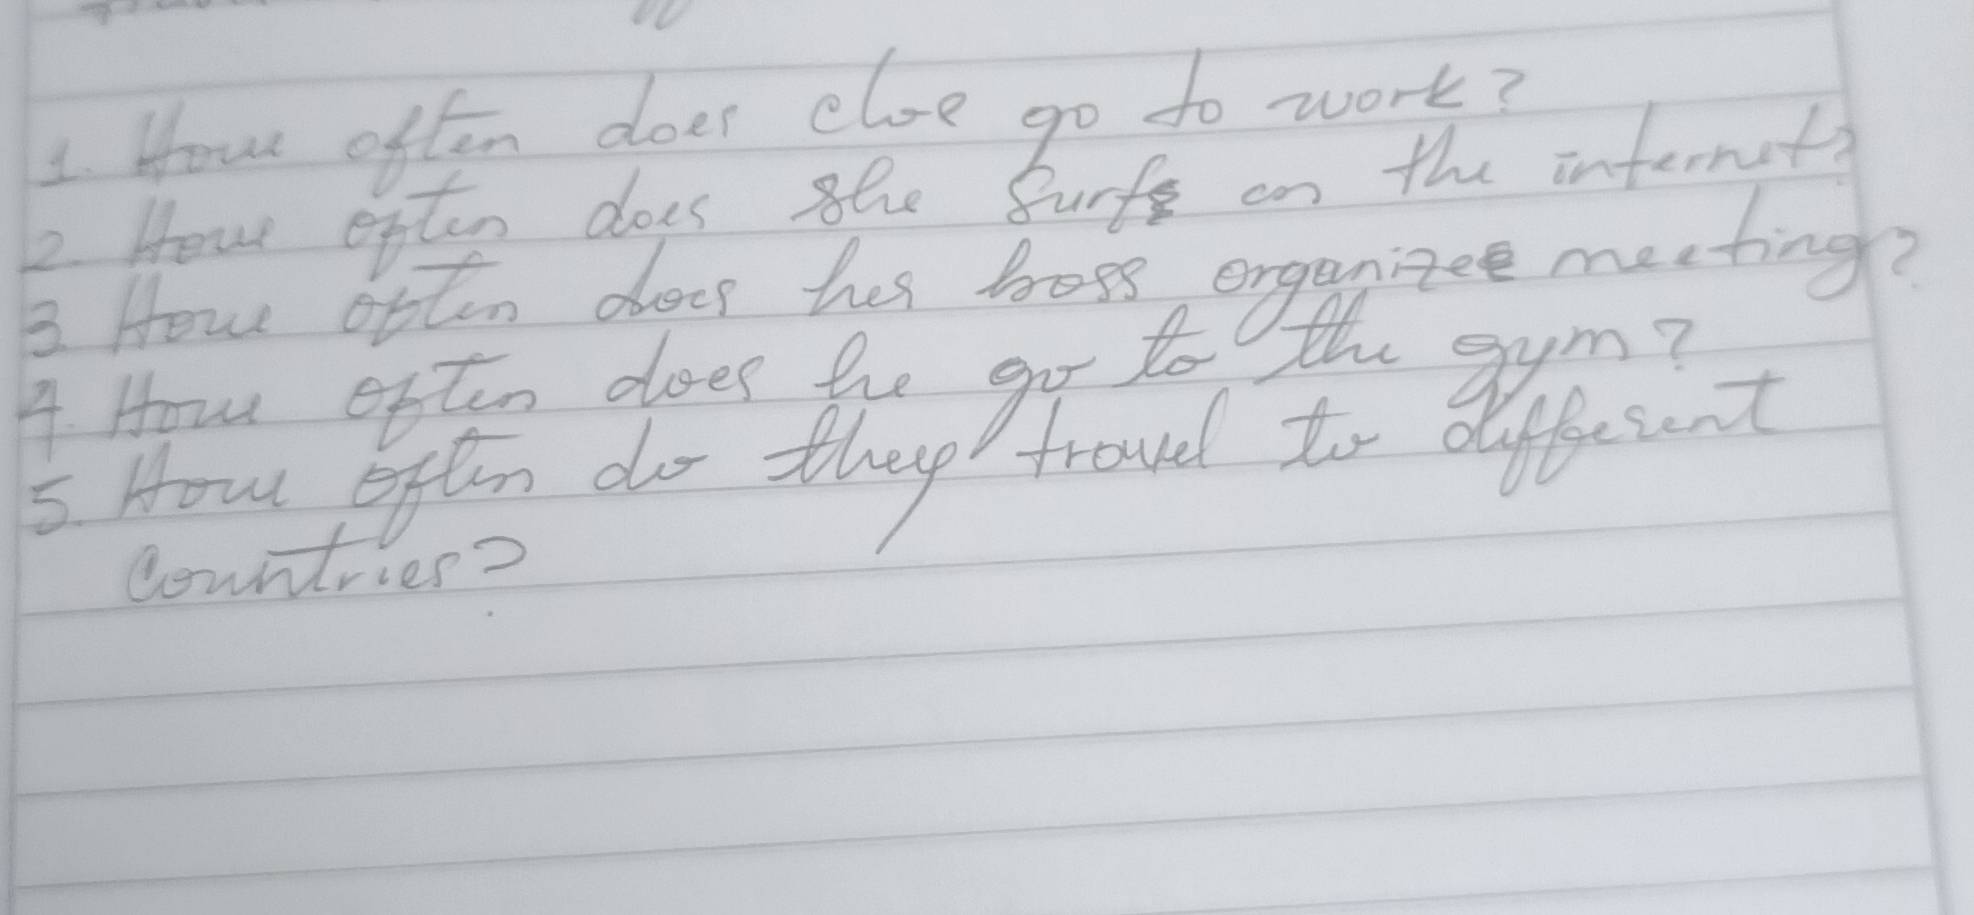 1. How often does cloe go to work?
2. How often does she surf on the internet?
3. How often does her boss organize meeting?
4. How often does he go to the gym?
5. How often do they travel to different
countries?